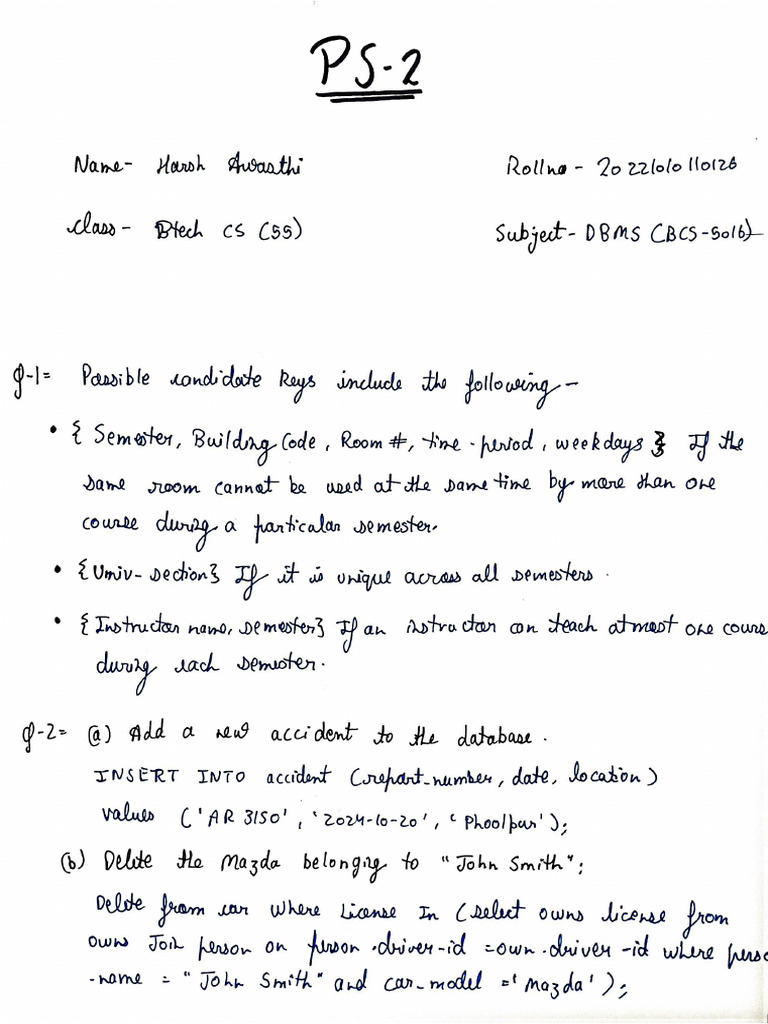 PS-2
Name- Harsh Awasthi Rollno - 2022101010110126
Class- Btech CS (55) Subject- DBMS (BCS-501b)
Q-1= Possible candidate keys include the following -
• { Semester, Building Code, Room #, time-period, weekdays } If the
same room cannot be used at the same time by more than one
course during a particular semester.
• {Univ-section} If it is unique across all semesters.
• {Instructor name, semester} If an instructor can teach atmost one cours
during each semester.
Q-2= (a) Add a new accident to the database.
INSERT INTO accident (report_number, date, location)
values ('AR 3150', '2024-10-20', 'Phoolpur');
(b) Delete the Mazda belonging to "John Smith";
Delete from car where License In (select owns license from
owns Join person on person.driver-id = own.driver-id where perso
-name = "John Smith" and car_model = 'Mazda');